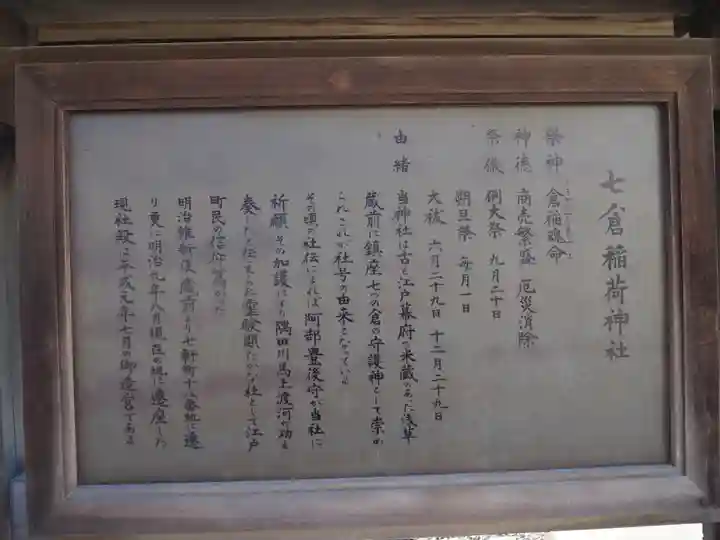 七倉稲荷神社
祭神 倉稲魂命
神徳 商売繁盛 厄災消除
祭儀 例大祭 九月二十日
朔旦祭 毎月一日
大祓 六月二十九日 十二月二十九日
由緒 当神社は古く江戸幕府の米蔵のあった浅草
蔵前に鎮座 七つの倉の守護神として崇め
られ これが社号の由来となっている
その頃の社伝によれば 阿部豊後守が当社に
祈願 その加護により 隅田川馬上渡河の功を
奏したと伝えられ霊験顕たかな社として江戸
町民の信仰篤かった
明治維新後 蔵前より七軒町十八番地に遷
り 更に明治九年八月現在の地に遷座した
現社殿は平成元年七月の御造営である